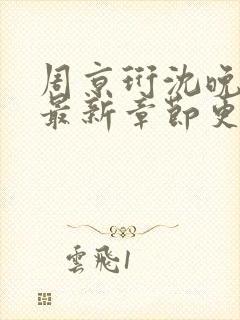 周京珩沈晚
最新章節更
雲飛1